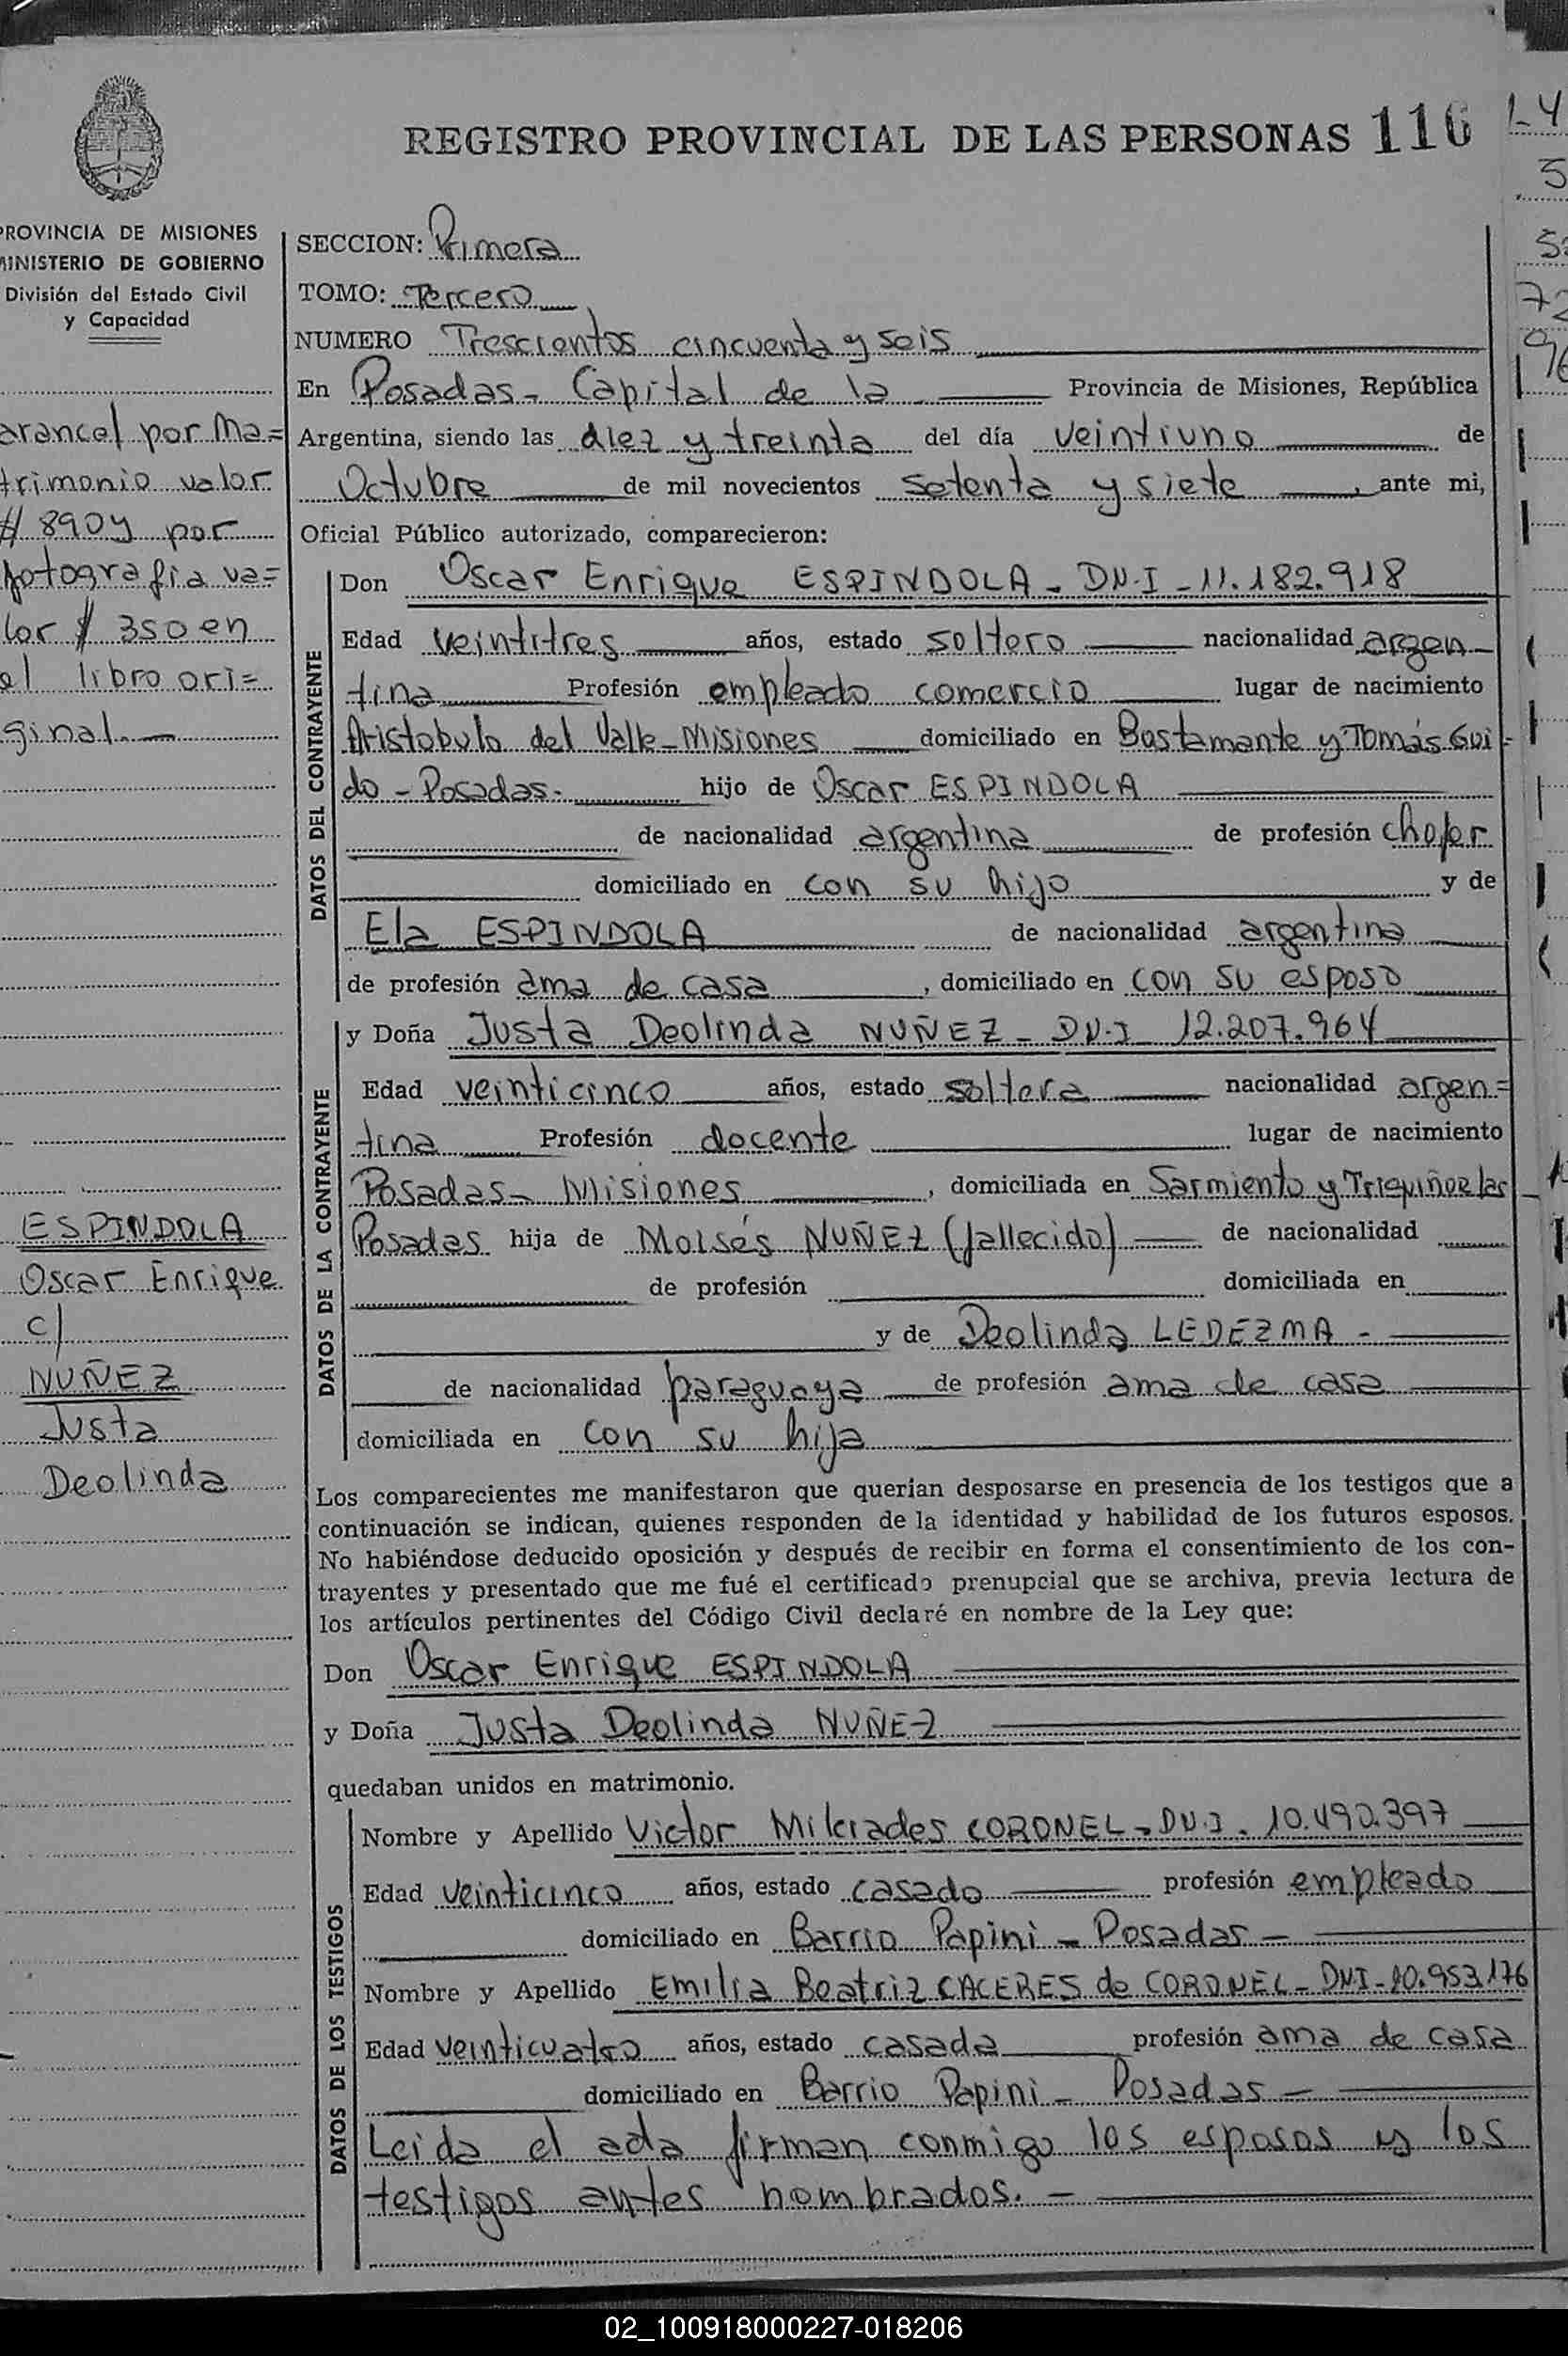 REGISTRO PROVINCIAL DE LAS PERSONAS 116
PROVINCIA DE MISIONES
MINISTERIO DE GOBIERNO
División del Estado Civil
y Capacidad
arancel por Ma=
trimonio valor
$ 890 y por
fotografia va=
lor $ 350 en
el libro ori=
ginal.-
ESPINDOLA
Oscar Enrique
c/
NUÑEZ
Justa
Deolinda
SECCION: Primera
TOMO: Tercero
NUMERO Trescientos cincuenta y seis
En Posadas - Capital de la Provincia de Misiones, República
Argentina, siendo las diez y treinta del día veintiuno de
Octubre de mil novecientos setenta y siete, ante mi,
Oficial Público autorizado, comparecieron:
DATOS DEL CONTRAYENTE
Don Oscar Enrique ESPINDOLA - DN.I - 11.182.918
Edad veintitres años, estado soltero nacionalidad argen
tina Profesión empleado comercio lugar de nacimiento
Aristobulo del Valle - Misiones domiciliado en Bustamante y Tomás Gui-
do - Posadas- hijo de Oscar ESPINDOLA
de nacionalidad argentina de profesión chofer
domiciliado en con su hijo y de
Ela ESPINDOLA de nacionalidad argentina
de profesión ama de casa, domiciliado en con su esposo
DATOS DE LA CONTRAYENTE
y Doña Justa Deolinda NUÑEZ - DN.I 12.207.964
Edad veinticinco años, estado soltera nacionalidad argen=
tina Profesión docente lugar de nacimiento
Posadas - Misiones, domiciliada en Sarmiento y
Posadas hija de Moisés NUÑEZ (fallecido) de nacionalidad
de profesión domiciliada en
y de Deolinda LEDEZMA -
de nacionalidad paraguaya de profesión ama de casa
domiciliada en con su hija
Los comparecientes me manifestaron que querian desposarse en presencia de los testigos que a
continuación se indican, quienes responden de la identidad y habilidad de los futuros esposos.
No habiéndose deducido oposición y después de recibir en forma el consentimiento de los con-
trayentes y presentado que me fué el certificado prenupcial que se archiva, previa lectura de
los artículos pertinentes del Código Civil declaré en nombre de la Ley que:
Don Oscar Enrique ESPINDOLA
y Doña Justa Deolinda NUÑEZ
quedaban unidos en matrimonio.
DATOS DE LOS TESTIGOS
Nombre y Apellido Victor Milciades CORONEL - DN.I. 10.490.397
Edad veinticinco años, estado casado profesión empleado
domiciliado en Barrio Papini - Posadas -
Nombre y Apellido Emilia Beatriz CACERES de CORONEL - DN.I - 10.953.176
Edad veinticuatro años, estado casada profesión ama de casa
domiciliado en Barrio Papini - Posadas -
Leida el acta firman conmigo los esposos y los
testigos antes nombrados. -
02_100918000227-018206